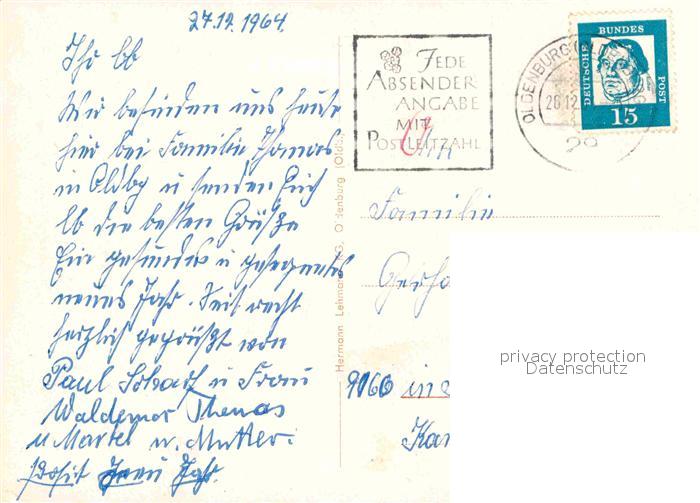 27.12.1964.
Ihr lb
Wir befinden uns heute
hier bei Familie Thomas
in Oldbg u senden Euch
lb die besten Grüße
Ein gesundes u gesegnetes
neues Jahr. Seit recht
herzlich gegrüßt von
Paul u Frau
Waldemar Thomas
u Martel u. Mutter.
Prosit Jahr.
Hermann Lehmann Oldenburg (Oldb)
JEDE
ABSENDER
ANGABE
MIT
POSTLEITZAHL
OLDENBURG (OLDB)
28.12.
29
DEUTSCHE BUNDES POST
15
Familie
Gerha
9060 in
Kar
privacy protection
Datenschutz